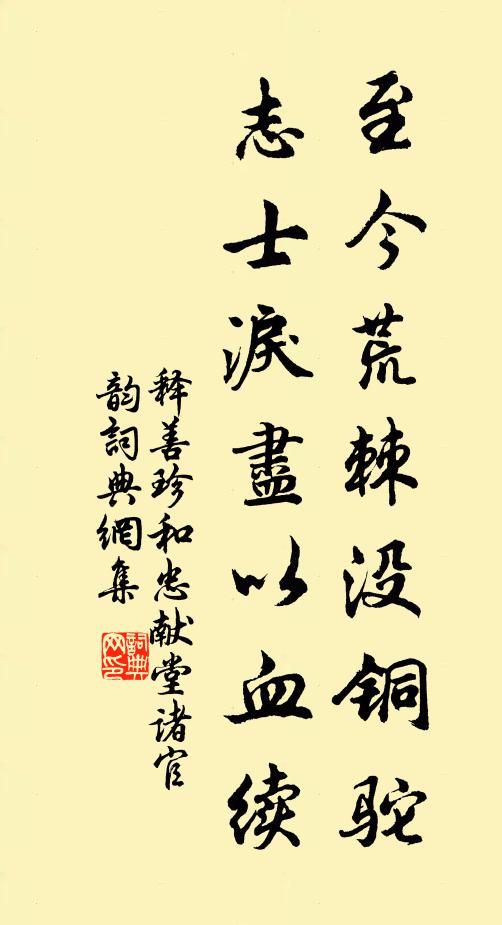 至今荒棘没铜驼
志士淚盡以血续
释善珍和忠献堂诸官
韵词典網集
詞典網印